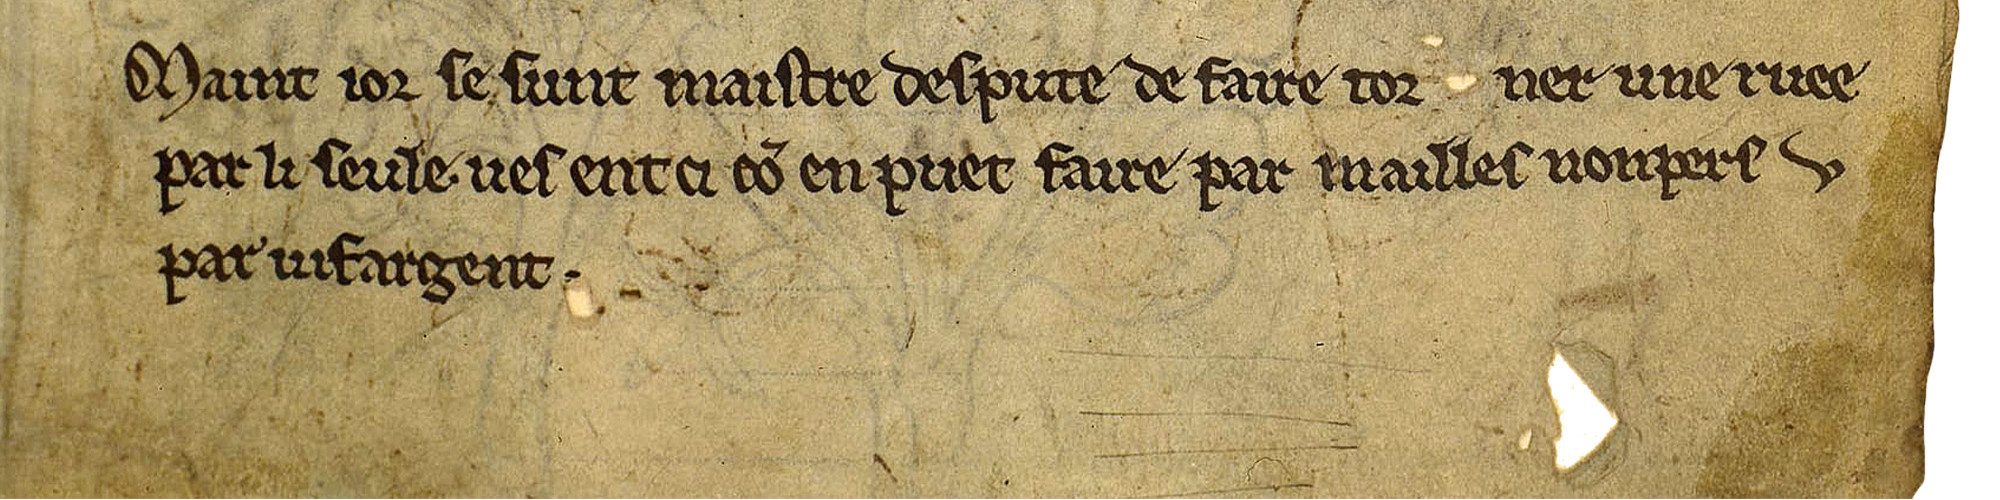 Maint ior se sunt maistre despute de faire tor ner une ruee
par li seule ues ent ci cō en puet faire par mailles nonpers v
par uifargent.